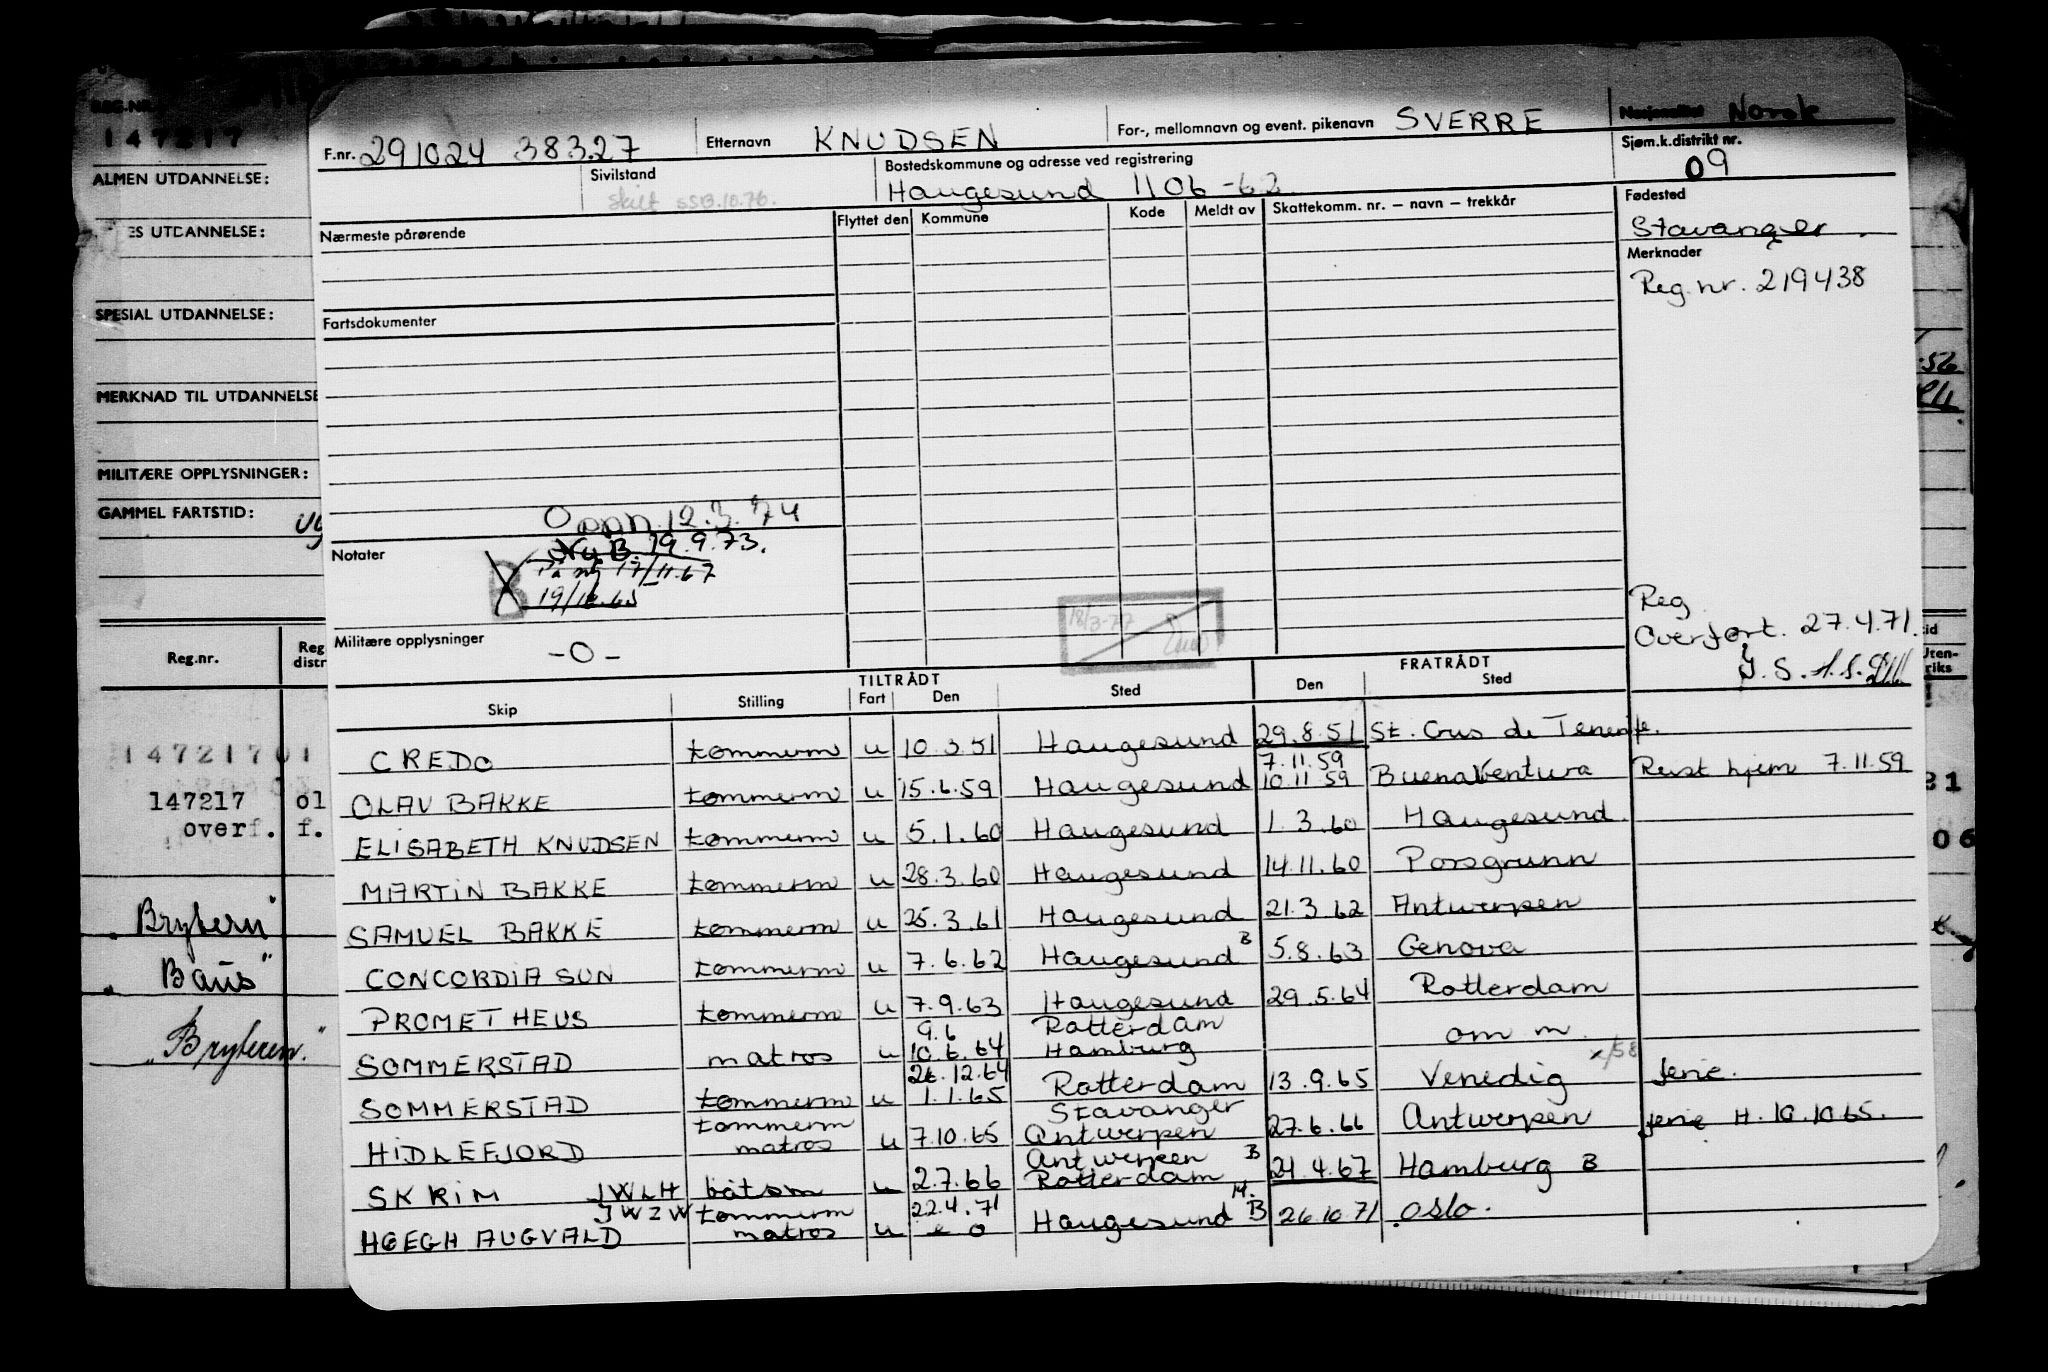 REG.NR.
147217
ALMEN UTDANNELSE:
ES UTDANNELSE:
SPESIAL UTDANNELSE:
MERKNAD TIL UTDANNELSE
MILITÆRE OPPLYSNINGER:
GAMMEL FARTSTID:
Reg.nr. Reg distr
14721701
147217 01
overf. f.
"Brytern"
"Baus"
"Bryteren."
F.nr. 291024 38327 Etternavn KNUDSEN For-, mellomnavn og event. pikenavn SVERRE Nasjonalitet Norsk
Sivilstand Skilt SSB.10.76. Bostedskommune og adresse ved registrering Haugesund 1106-62 Sjøm.k.distrikt nr. 09
Nærmeste pårørende Flyttet den Kommune Kode Meldt av Skattekomm. nr. – navn – trekkår Fødested
Stavanger.
Merknader
Reg.nr. 219438
Fartsdokumenter
Oppn. 12.3.74
Notater Ny B. 19.9.73.
B På ny 17/11.67
19/10.65
Militære opplysninger -0-
18/3-77
Reg
Overført. 27.4.71.
TILTRÅDT FRATRÅDT
Skip Stilling Fart Den Sted Den Sted
CREDO tømmerm u 10.3.51 Haugesund 29.8.51 St. Crus de Tenerife.
OLAV BAKKE tømmerm u 15.6.59 Haugesund 7.11.59 10.11.59 Buenaventura Reist hjem 7.11.59
ELISABETH KNUDSEN tømmerm u 5.1.60 Haugesund 1.3.60 Haugesund
MARTIN BAKKE tømmerm u 28.3.60 Haugesund 14.11.60 Porsgrunn
SAMUEL BAKKE tømmerm u 25.3.61 Haugesund 21.3.62 Antwerpen
CONCORDIA SUN tømmerm u 7.6.62 Haugesund B 5.8.63 Genova
PROMETHEUS tømmerm u 7.9.63 Haugesund 29.5.64 Rotterdam
SOMMERSTAD matros u 9.6 10.6.64 Rotterdam Hamburg om m.
SOMMERSTAD tømmerm u 26.12.64 1.1.65 Rotterdam 13.9.65 Venedig ferie.
HIDLEFJORD tømmerm matros u 7.10.65 Stavanger Antwerpen 27.6.66 Antwerpen ferie H. 10.10.65.
SKRIM JWLH båtsm u 2.7.66 Antwerpen Rotterdam B 21.4.67 Hamburg B
HØEGH AUGVALD JWZW tømmerm matros u 22.4.71 Haugesund M. B 26.10.71 Oslo.